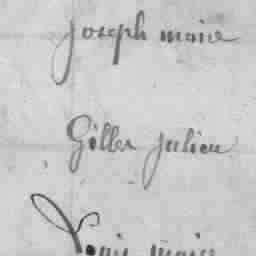 joseph maire
Gilles julien
Louis maire